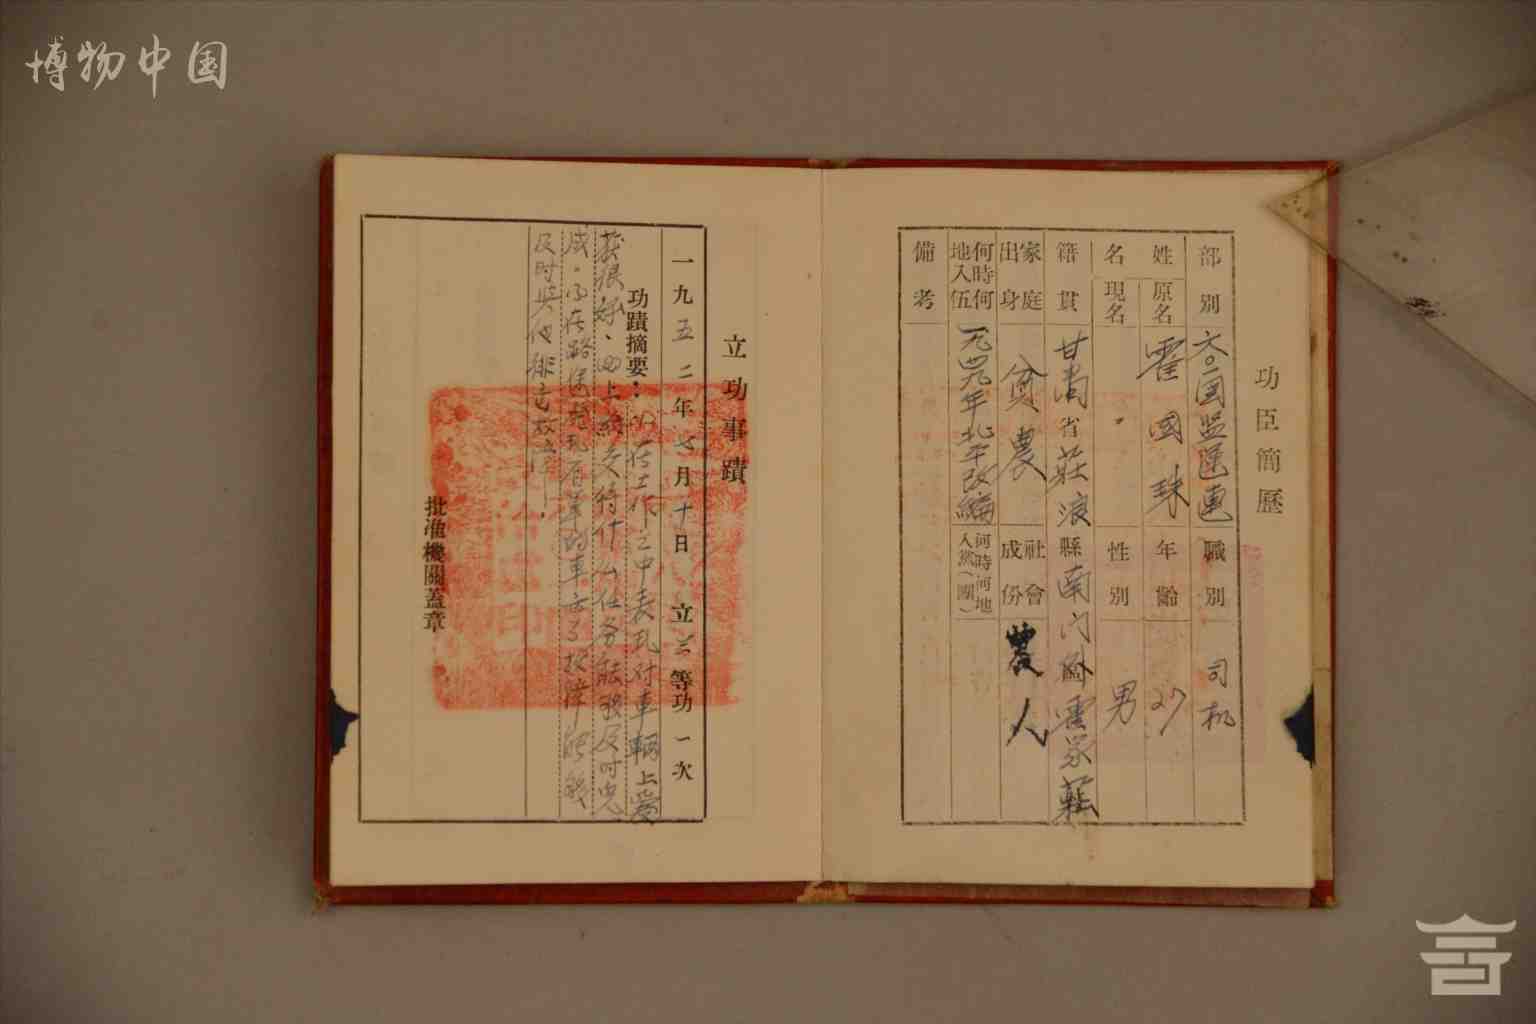 博物中国
功臣簡歷
部別 六〇一团监运連 職別 司机
姓名 原名 霍國珠 年齡 27
現名 性別 男
籍貫 甘肃省莊浪縣南门外霍家莊
家庭出身 貧農 社會成份 農人
何時何地入伍 一九四九年北平改編 何時何地入黨(團)
備考
立功事蹟
一九五二年七月十日 立三等功一次
功蹟摘要：(1)在工作之中表現对車輛上爱
获很好、(2)上級交待什么任务能按及时完
成。(3)在路途发現有单的車出了故障能够
及时与他排
批准機關蓋章